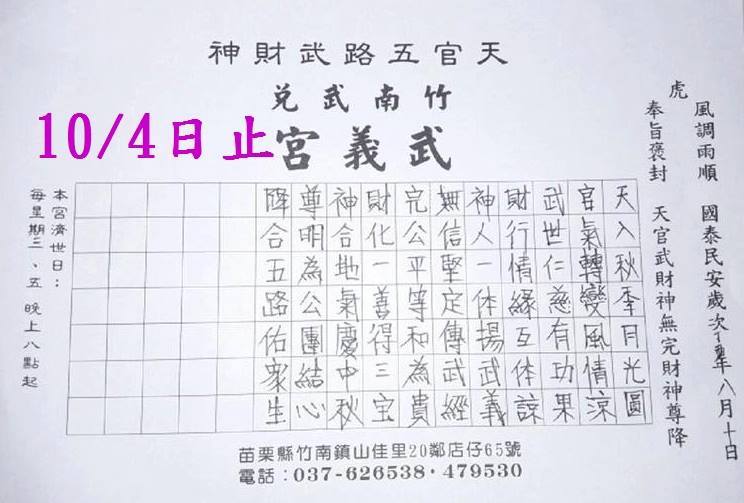 天官五路武財神
竹南武兌
武義宮
10/4日止
風調雨順 國泰民安歲次丁酉年八月十日
虎
奉旨褒封 天官武財神無完財神尊降
天入秋季月光圓
官氣轉變風情涼
武世仁慈有功果
財行情緣互体諒
神人一体揚武義
無信堅定傳武經
完公平等和為貴
財化一善得三宝
神合地氣慶中秋
尊明為公團結心
降合五路佑眾生
本宮濟世日：
每星期三、五 晚上八點起
苗栗縣竹南鎮山佳里20鄰店仔65號
電話：037-626538·479530